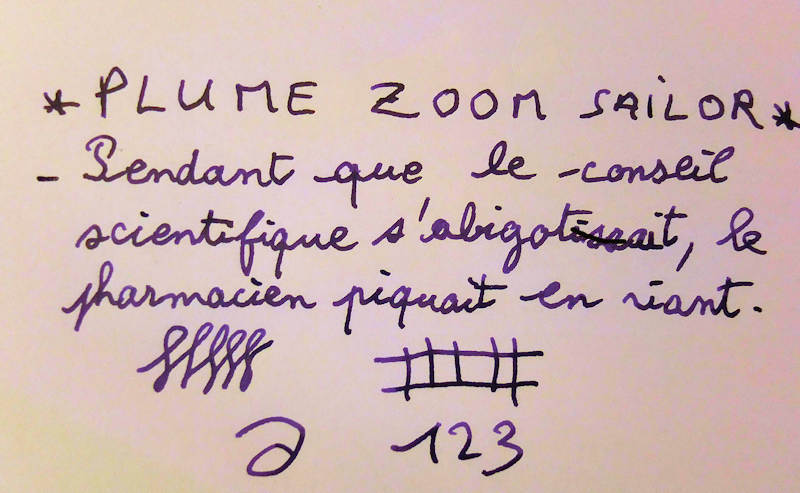 * PLUME ZOOM SAILOR *
- Pendant que le conseil
scientifique s'abigotissait, le
pharmacien piquait en riant.
123